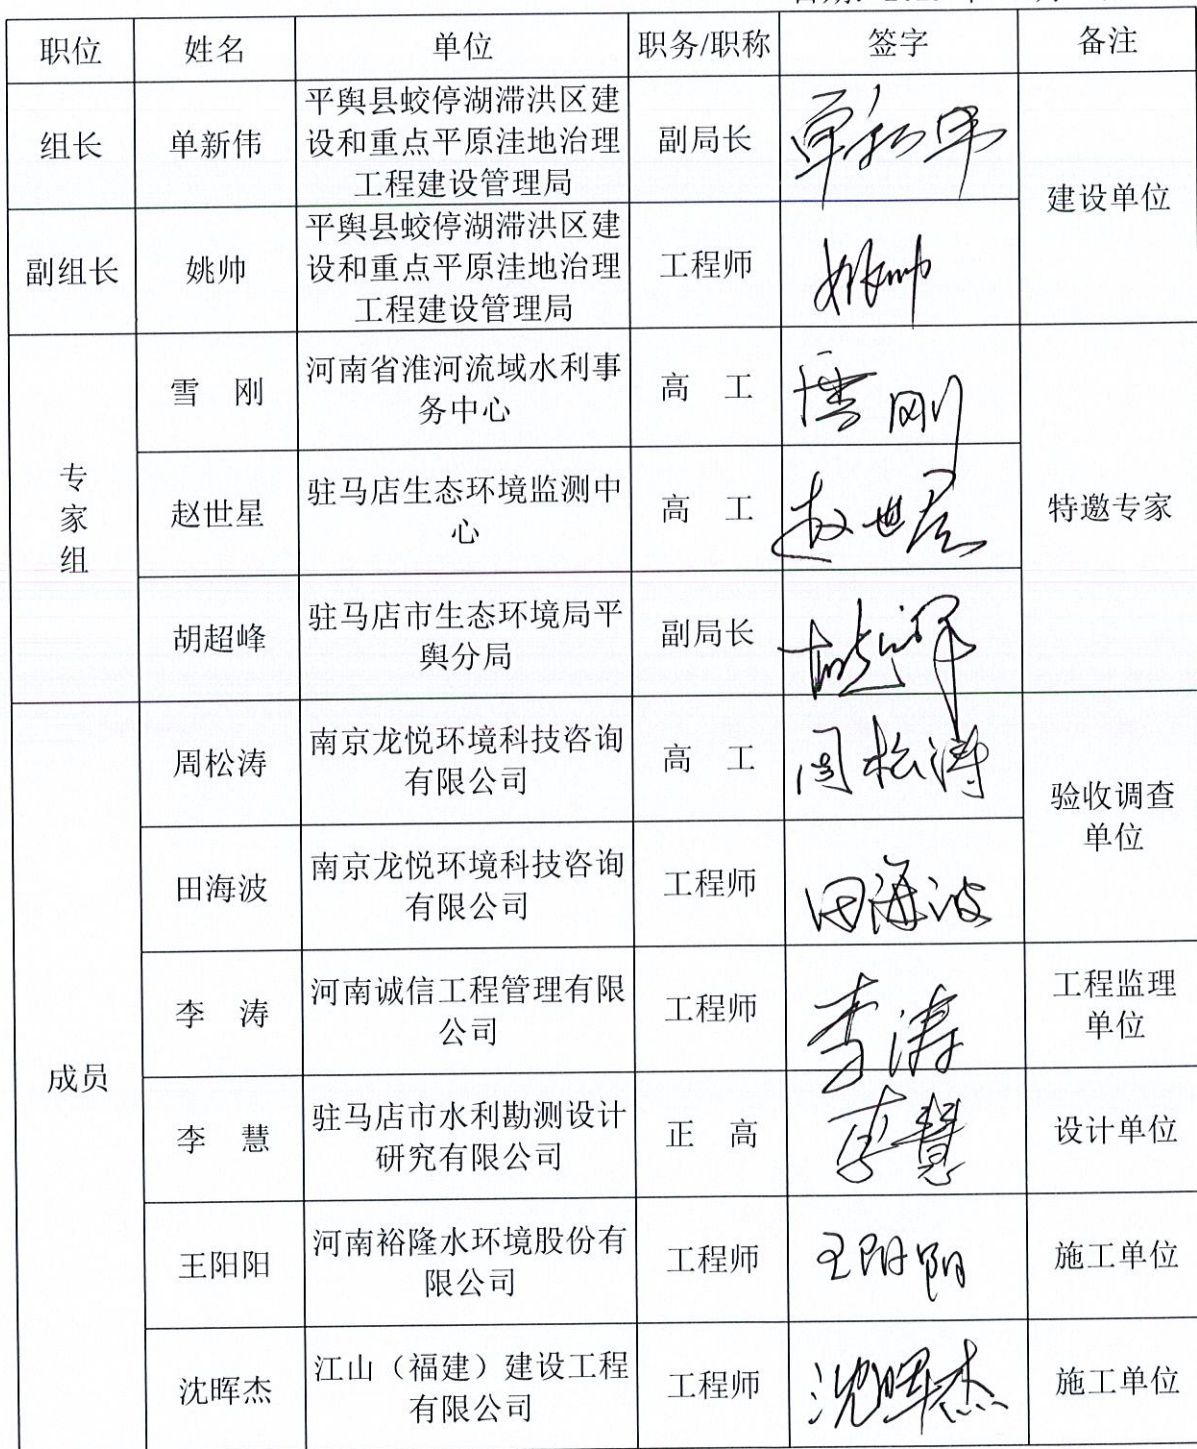 职位 姓名 单位 职务/职称 签字 备注
组长 单新伟 平舆县蛟停湖滞洪区建
设和重点平原洼地治理
工程建设管理局 副局长 单新伟 建设单位
副组长 姚帅 平舆县蛟停湖滞洪区建
设和重点平原洼地治理
工程建设管理局 工程师 姚帅
专
家
组
雪 刚 河南省淮河流域水利事
务中心 高 工 雪刚
赵世星 驻马店生态环境监测中
心 高 工 赵世星 特邀专家
胡超峰 驻马店市生态环境局平
舆分局 副局长 胡超峰
成员
周松涛 南京龙悦环境科技咨询
有限公司 高 工 周松涛 验收调查
单位
田海波 南京龙悦环境科技咨询
有限公司 工程师 田海波
李 涛 河南诚信工程管理有限
公司 工程师 李涛 工程监理
单位
李 慧 驻马店市水利勘测设计
研究有限公司 正 高 李慧 设计单位
王阳阳 河南裕隆水环境股份有
限公司 工程师 王阳阳 施工单位
沈晖杰 江山（福建）建设工程
有限公司 工程师 沈晖杰 施工单位